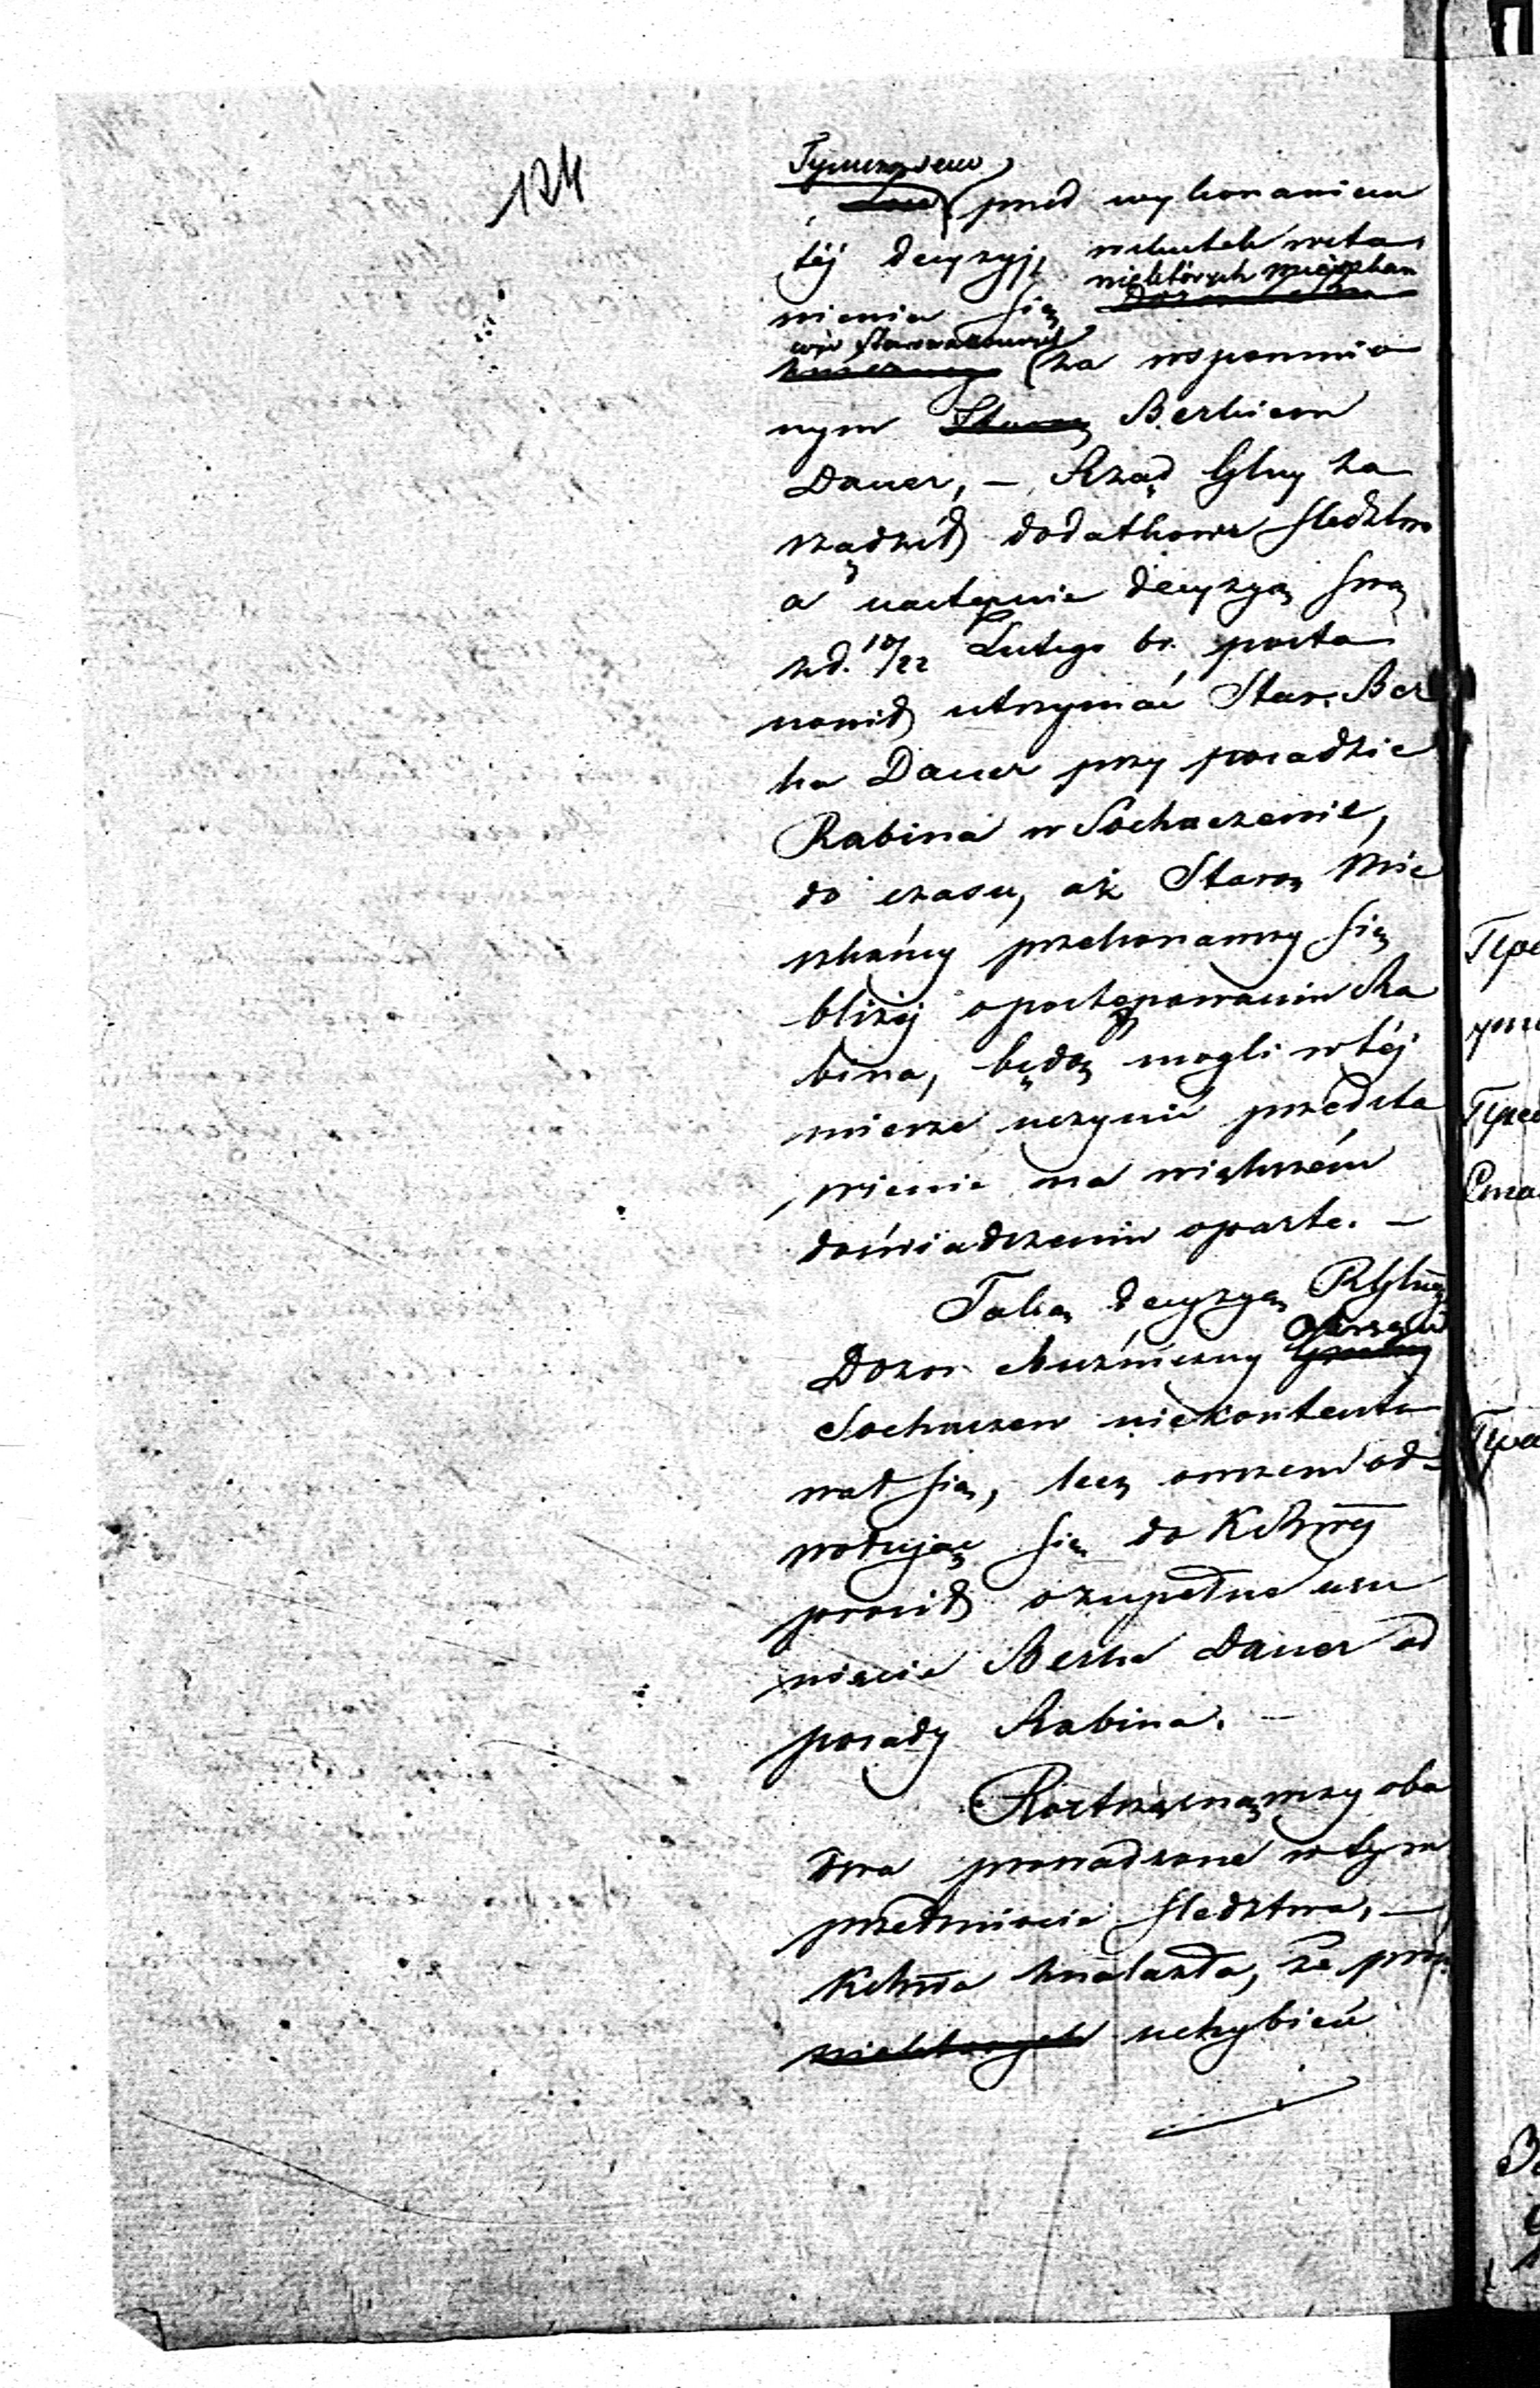 124
Tymczasem
przed wykonaniem
téj decyzyj, wskutek wsta
niektórych mieszkań
wienia się
ców Starozakonnych
za wspomnio
nym Staroz Berkiem
Dauer, — Rząd Gbny za
rządził dodatkowe śledztwo
a następnie decyzyą swą
z d. 10/22 Lutego br. posta
nowił utrzymać Star. Ber
ka Dauer przy posadzie
Rabina w Sochaczewie,
do czasu, aż Staroz Mie
szkańcy przekonawszy się
bliżéj o postępowaniu Ra
bina, będą mogli w téj
mierze uczynić przedsta
wienie na większém
doświadczeniu oparte. —
Taką decyzyą RGbneg
Dozór Bużniczny Okręgu
Sochaczew niekontento
wał się, lecz owszem od-
wołując się do KRwéj
prosił o zupełne usu
nięcie Berka Dauer od
posady Rabina. —
Roztrząsnąwszy oba
dwa prowadzone w tym
przedmiocie śledztwa, —
KRwa znalazła, że prócz
niektórych uchybień
Пред
Пра